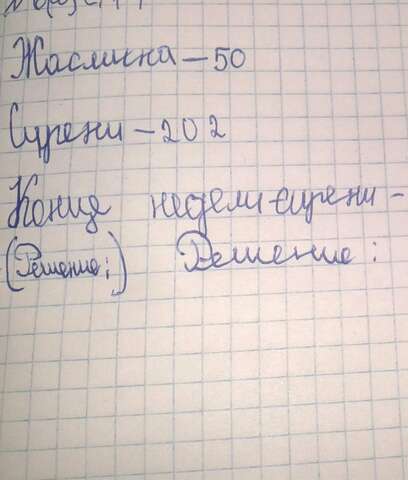 Жасмина - 50
Сирени - 202
Конце недели сирени -
(Решение:) Решение: